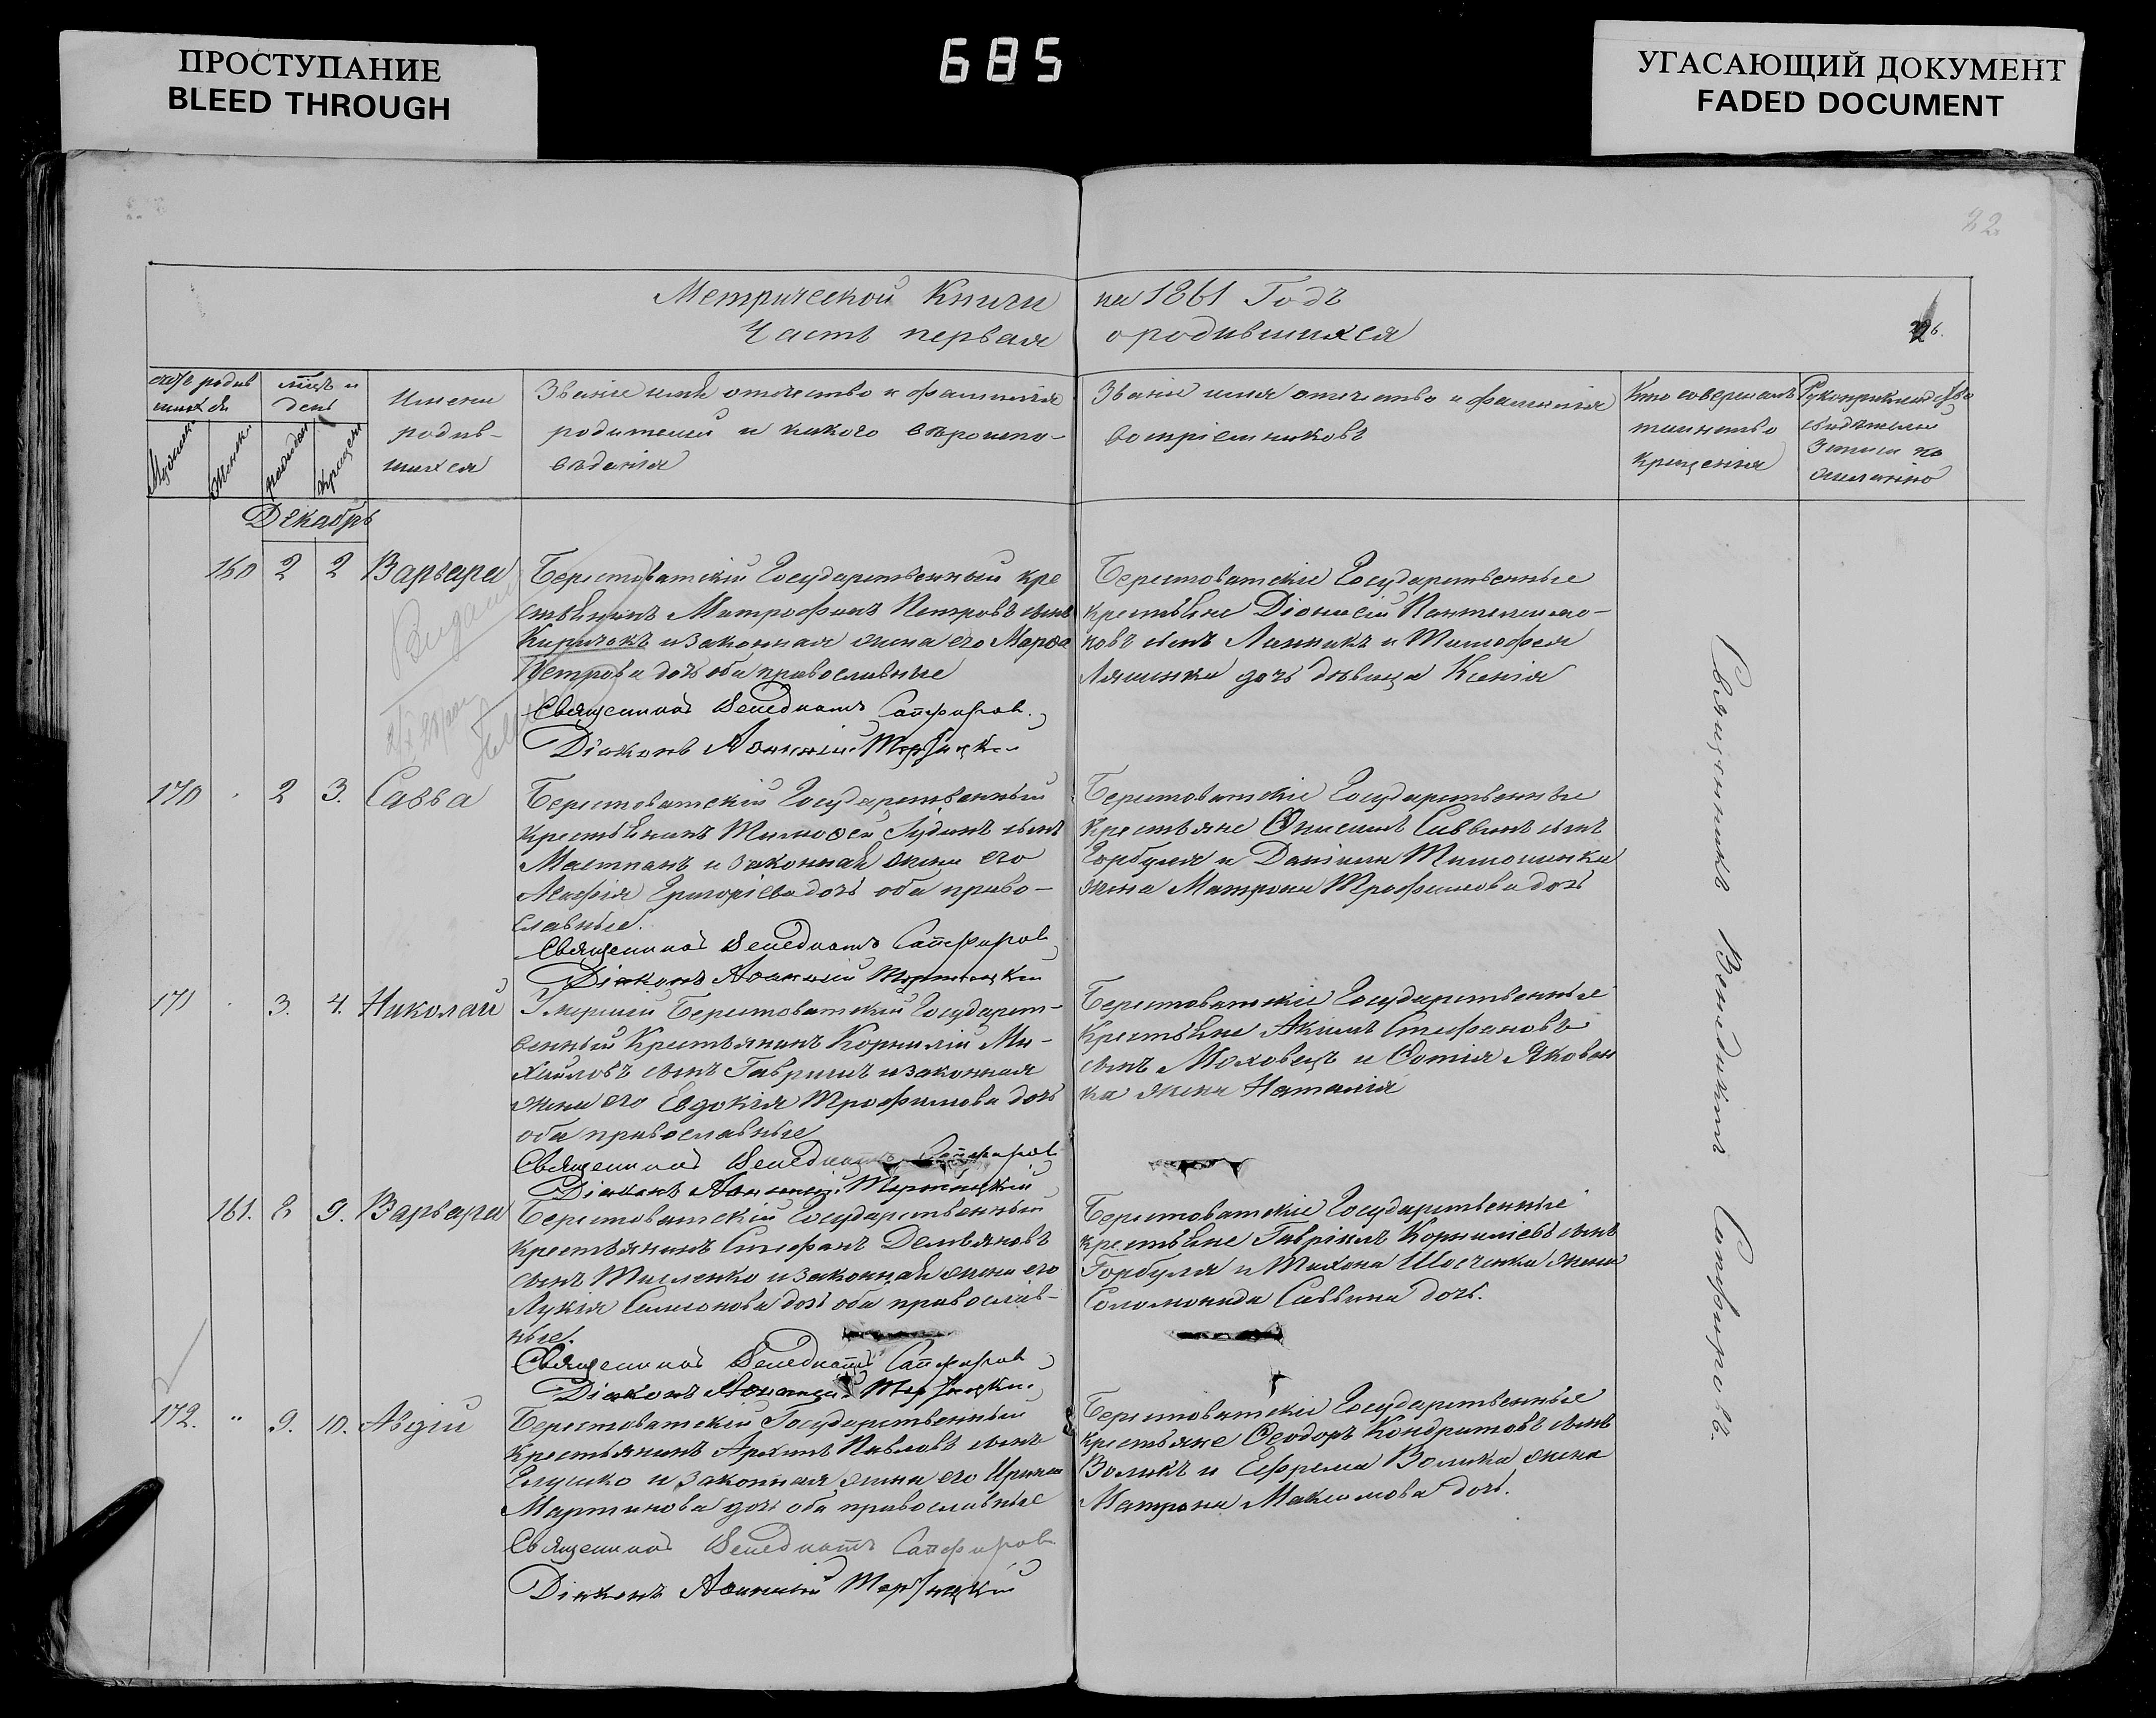 ПРОСТУПАНИЕ
BLEED THROUGH
685
УГАСАЮЩИЙ ДОКУМЕНТ
FADED DOCUMENT
22
Метрической Книги на 1861 Годъ
Часть первая о родившихся
Имена
родив-
шихся
Званіе имя отчество и фамилія
родителей и какого вѣроиспо-
вѣданія
Званіе имя отчество и фамилія
воспріемниковъ
Кто совершалъ
таинство
крещенія
Декабрь
160 2 2 Варвара
Берестоватскій Государственный кре
стьянинъ Митрофанъ Петровъ сынъ
Кирычокъ и законная жена его Марѳа
Петрова дочь оба православные
Священникъ Венедиктъ Сапфировъ
Діаконъ
Берестоватскіе Государственные
крестьяне Діонисій Пантелеимо-
новъ сынъ Линникъ и Тимофея
Ляшенка дочь дѣвица Ксенія
170 2 3. Савва
Берестоватскій Государственный
крестьянинъ Тимоѳей Іудинъ сынъ
Мастпанъ и законная жена его
Григоріева дочь оба право-
славные.
Священникъ Венедиктъ Сапфировъ
Діаконъ
Берестоватскіе Государственные
крестьяне Онисимъ Саввинъ сынъ
Горбуля и Даніила Тимошинки
жена Матрона Трофимова дочь
171 3. 4. Николай
Умершій Берестоватскій Государст-
венный Крестьянинъ Корнилій Ми-
хайловъ сынъ Гавришъ и законная
жена его Евдокія Трофимова дочь
оба православные
Священникъ Венедиктъ Сапфировъ
Діаконъ
Берестоватскіе Государственные
Крестьяне Акимъ Стефановъ
сынъ Моховецъ и Фотія Яковен
ка жена Наталія
161. 8 9. Варвара
Берестоватскій Государственный
крестьянинъ Стефанъ Демьяновъ
сынъ Тисленко и законная жена его
Лукія Самсонова дочь оба православ-
ные.
Священникъ Венедиктъ Сапфировъ
Діаконъ
Берестоватскіе Государственные
крестьяне Гавріилъ Корниліевъ сынъ
Горбуля и Тихона Шосченка жена
Соломонида Саввина дочь.
172. " 9. 10. Авдій
Берестоватскій Государственный
крестьянинъ Архипъ Павловъ сынъ
Глушко и законная жена его Ирина
Мартинова дочь оба православные
Священникъ Венедиктъ Сапфировъ
Діаконъ
Берестоватскіе Государственные
крестьяне Ѳеодоръ Кондратовъ сынъ
Воликъ и Ефрема Волика жена
Матрона Максимова дочь.
Священникъ Венедиктъ Сапфировъ.